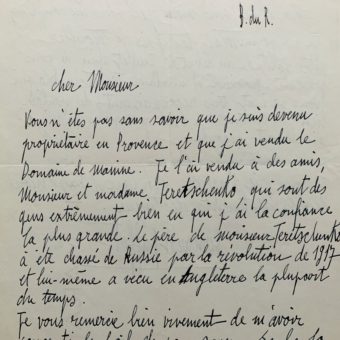 B. du R.
cher Monsieur
Vous n'êtes pas sans savoir que je suis devenu
propriétaire en Provence et que j'ai vendu le
Domaine de
Je l'ai vendu à des amis,
Monsieur et madame Teretschenko qui sont des
gens extrêmement bien en qui j'ai la confiance
la plus grande. Le père de monsieur Teretschenko
à été chassé de Russie par la révolution de 1917
et lui-même a vécu en Angleterre la plupart
du temps.
Je vous remercie bien vivement de m'avoir